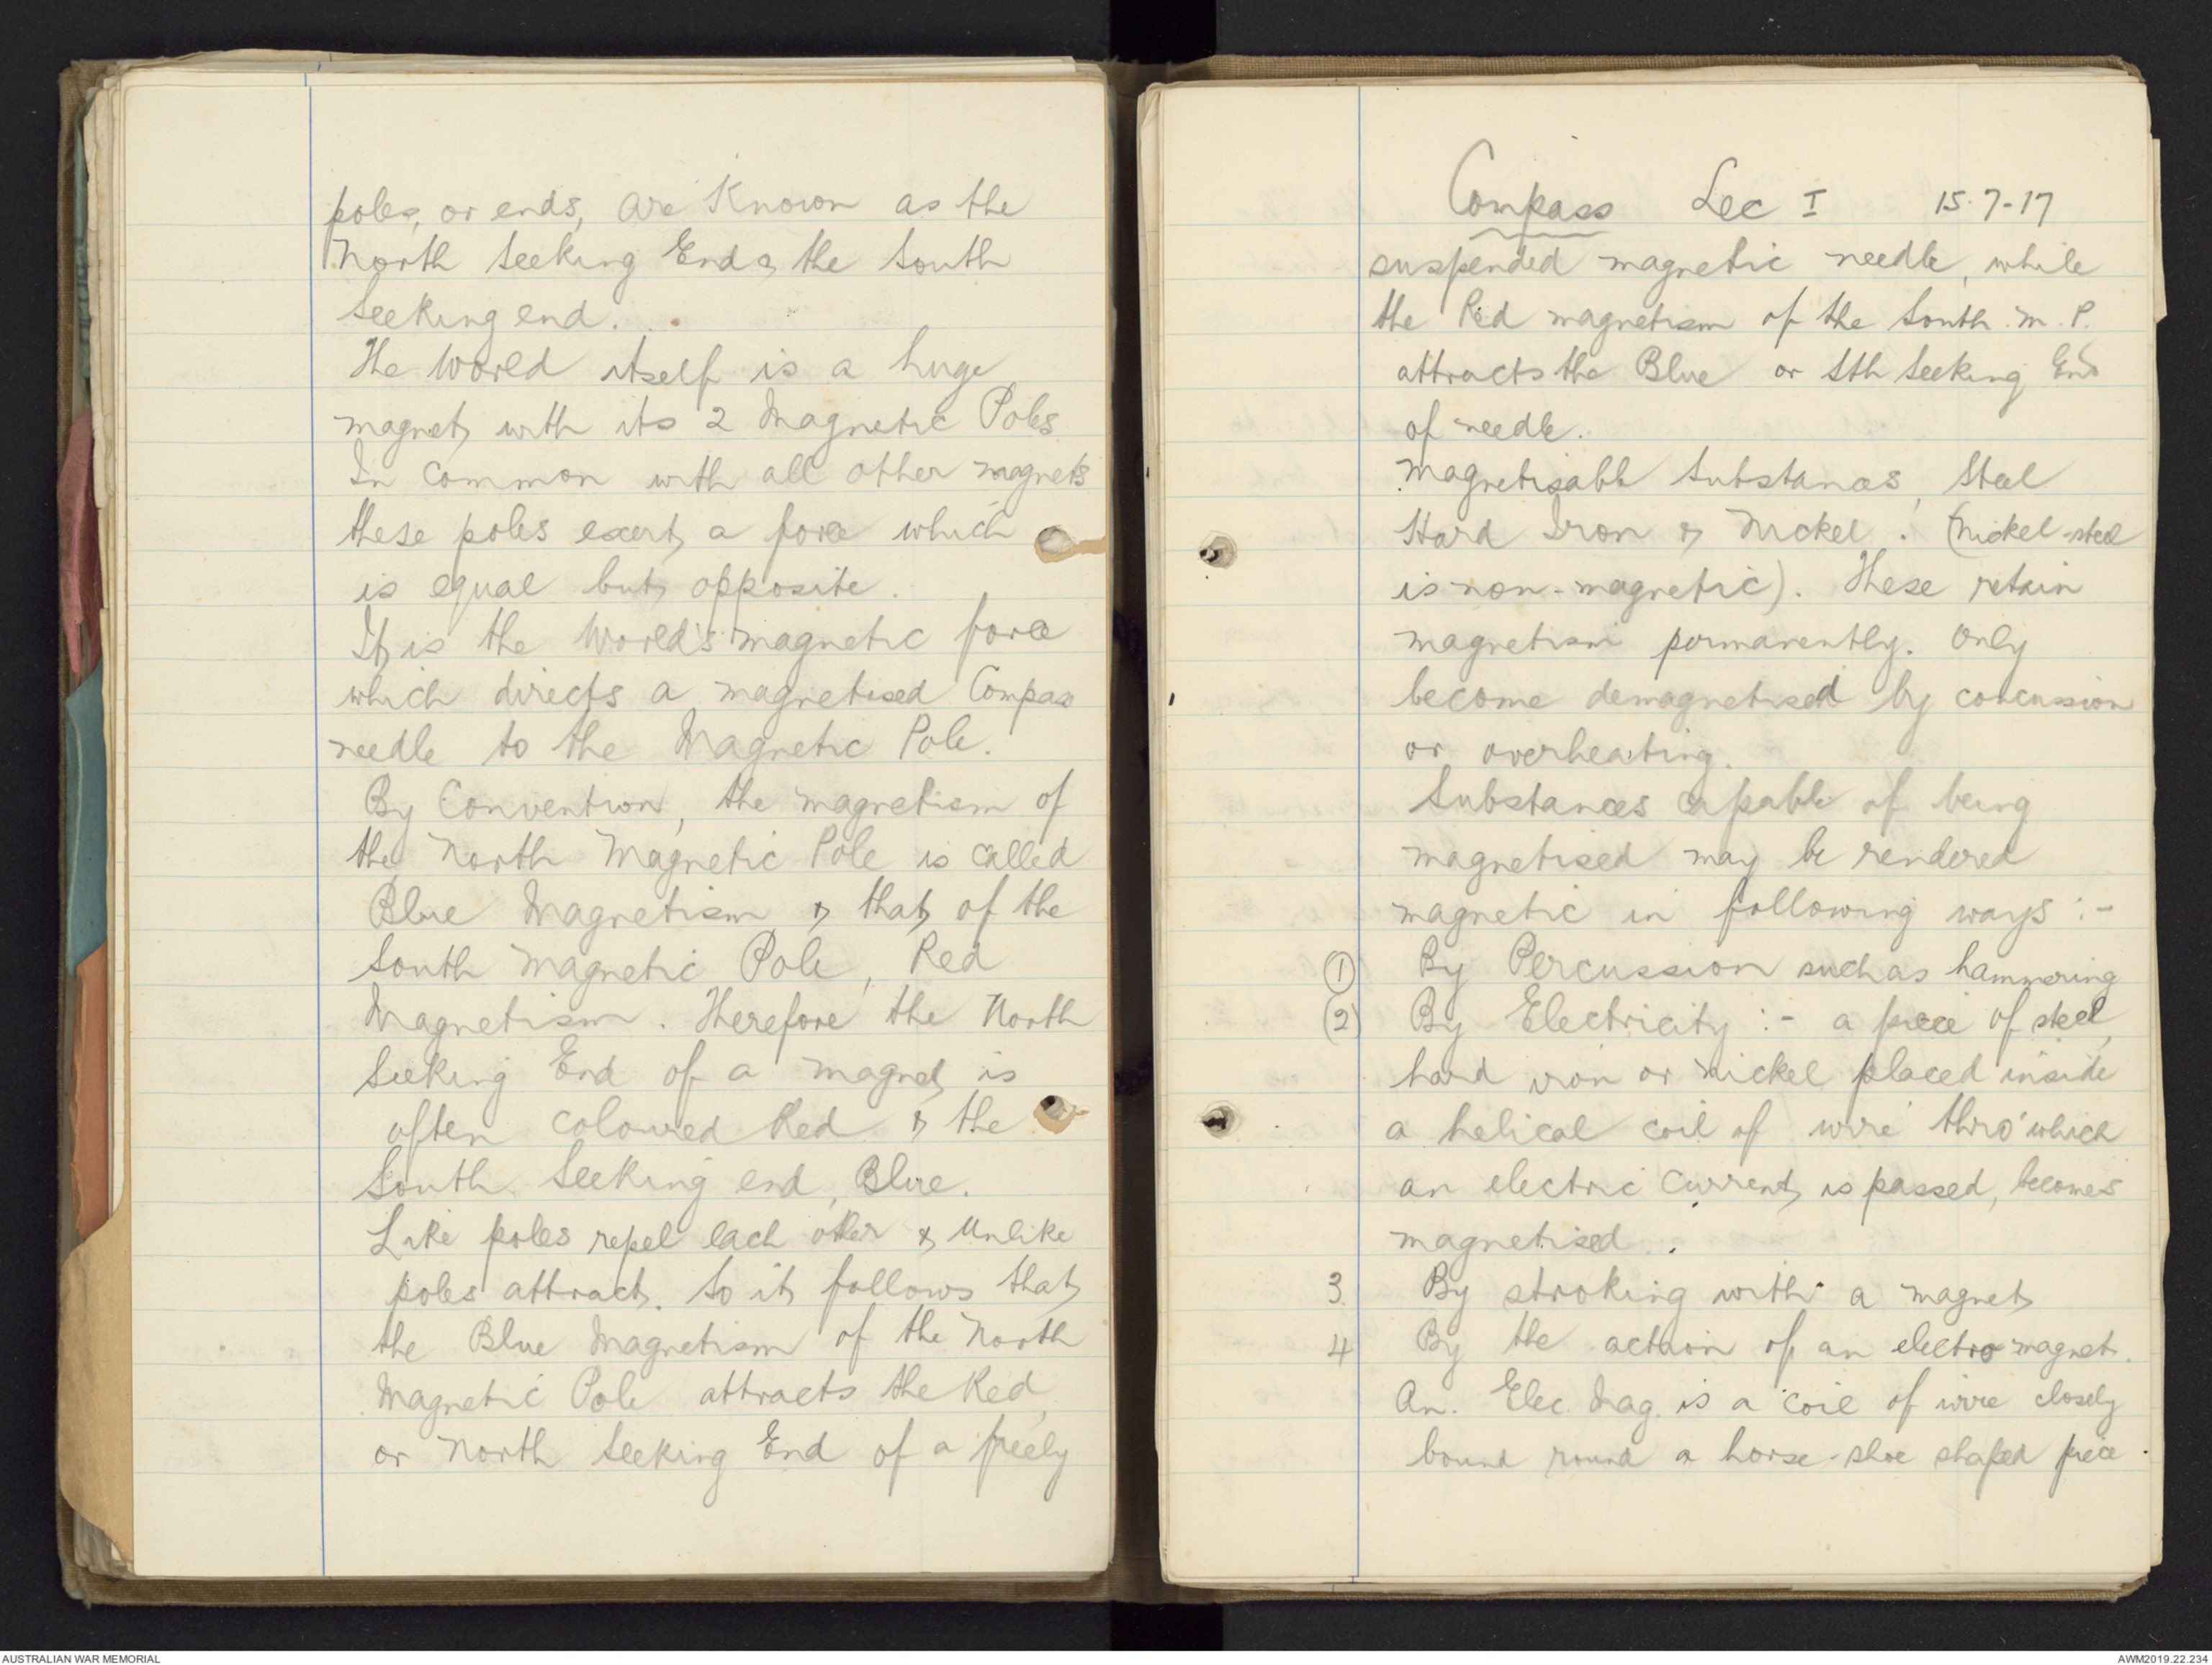 poles, or ends, are Known as the
North Seeking End & the South
Seeking end.
The World itself is a huge
magnet, with its 2 Magnetic Poles
In common with all other magnets
these poles exert a force which
is equal but opposite.
It is the World's magnetic force
which directs a magnetised Compass
needle to the Magnetic Pole.
By Convention, the magnetism of
the North Magnetic Pole is called
Blue Magnetism & that of the
South Magnetic Pole, Red
Magnetism. Therefore the North
Seeking End of a magnet is
often coloured Red & the
South Seeking end, Blue.
Like poles repel each other & Unlike
poles attract. So it follows that
the Blue Magnetism of the North
Magnetic Pole attracts the Red,
or North Seeking End of a freely
Compass Lec I 15-7-17
suspended magnetic needle, while
the Red magnetism of the South. M. P.
attracts the Blue or Sth Seeking End
of needle.
Magnetisable Substances, Steel
Hard Iron & Nickel. (Nickel-steel
is non-magnetic). These retain
magnetism permanently. Only
become demagnetised by concussion
or overheating.
Substances capable of being
magnetised may be rendered
magnetic in following ways :-
(1) By Percussion such as hammering
(2) By Electricity :- a piece of steel,
hard iron or nickel placed inside
a helical coil of wire thro' which
an electric Current is passed, becomes
magnetised.
3 By stroking with a magnet
4 By the action of an electro magnet.
An. Elec. Mag. is a coil of wire closely
bound round a horse-shoe shaped piece
AUSTRALIAN WAR MEMORIAL
AWM2019.22.234